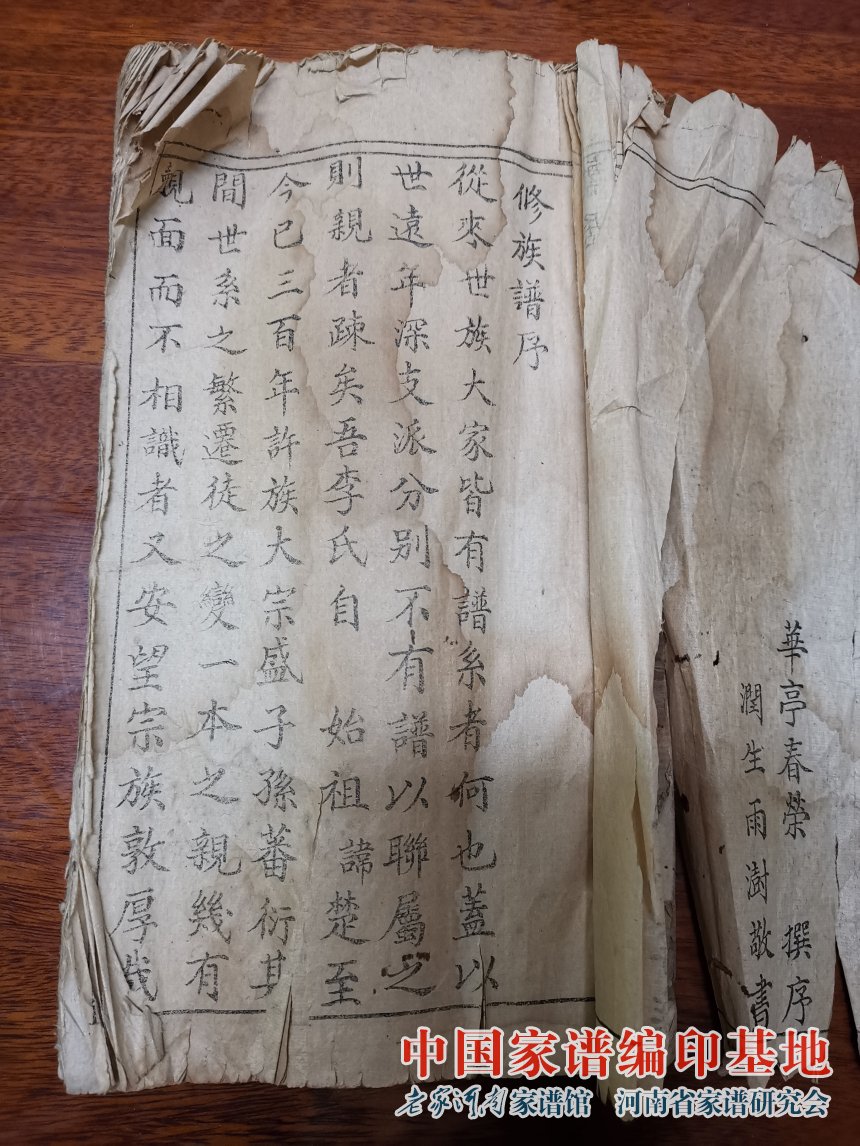 華亭春榮 撰序
潤生雨澍敬書
修族譜序
從來世族大家皆有譜系者何也蓋以
世遠年深支派分别不有譜以聯屬之
則親者疎矣吾李氏自 始祖 諱楚至
今已三百年許族大宗盛子孫蕃衍其
間世系之繁遷徒之變一本之親幾有
覿面而不相識者又安望宗族敦厚哉
中国家谱编印基地
老家河南家谱馆 河南省家谱研究会